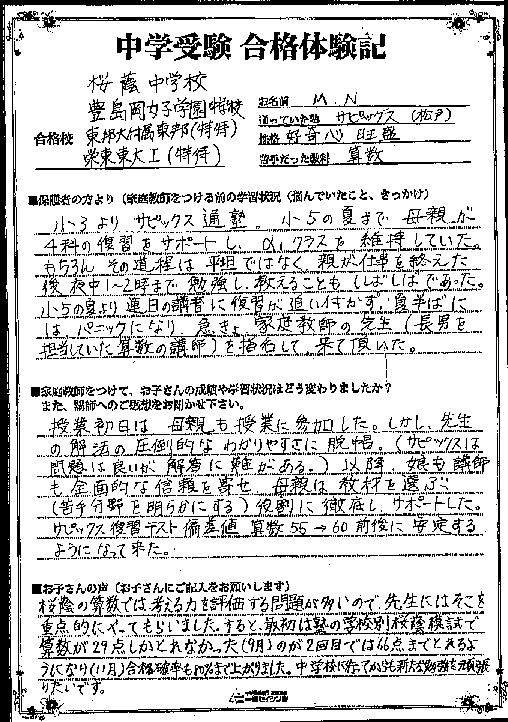 中学受験 合格体験記
合格校
桜蔭中学校
豊島岡女子学園 特待
東邦大付属東邦(特待)
栄東東大I(特待)
お名前 M.N
通っていた塾 サピックス(松戸)
性格 好奇心旺盛
苦手だった教科 算数
■保護者の方より(家庭教師をつける前の学習状況(悩んでいたこと、きっかけ)
小3よりサピックス通塾。小5の夏まで母親が
4科の復習をサポートし、α1クラスを維持していた。
もちろんその道程は平坦ではなく、親が仕事を終えた
後夜中1~2時まで勉強し、教えることもしばしばであった。
小5の夏より連日の講習に復習が追い付かず、夏半ばに
はパニックになり、急きょ家庭教師の先生(長男を
担当していた算数の講師)を指名して来て頂いた。
■家庭教師をつけて、お子さんの成績や学習状況はどう変わりましたか?
また、講師へのご感想をお聞かせ下さい。
授業初日は母親も授業に参加した。しかし、先生
の解法の圧倒的なわかりやすさに脱帽。(サピックスは
問題は良いが解答に難がある。)以降娘も講師
も全面的な信頼を寄せ母親は教材を選ぶ
(苦手分野を明らかにする)役割に徹底しサポートした。
サピックス復習テスト偏差値算数55→60前後に安定する
ようになって来た。
■お子さんの声(お子さんにご記入をお願いします)
桜蔭の算数では考える力を評価する問題が多いので、先生にはそこを
重点的にやってもらいました。すると、最初は塾の学校別桜蔭模試で
算数が29点しかとれなかった(9月)のが2回目では66点までとれるよ
うになり(11月)合格確率も70%まで上がりました。中学校に行ってからも
りたいです。